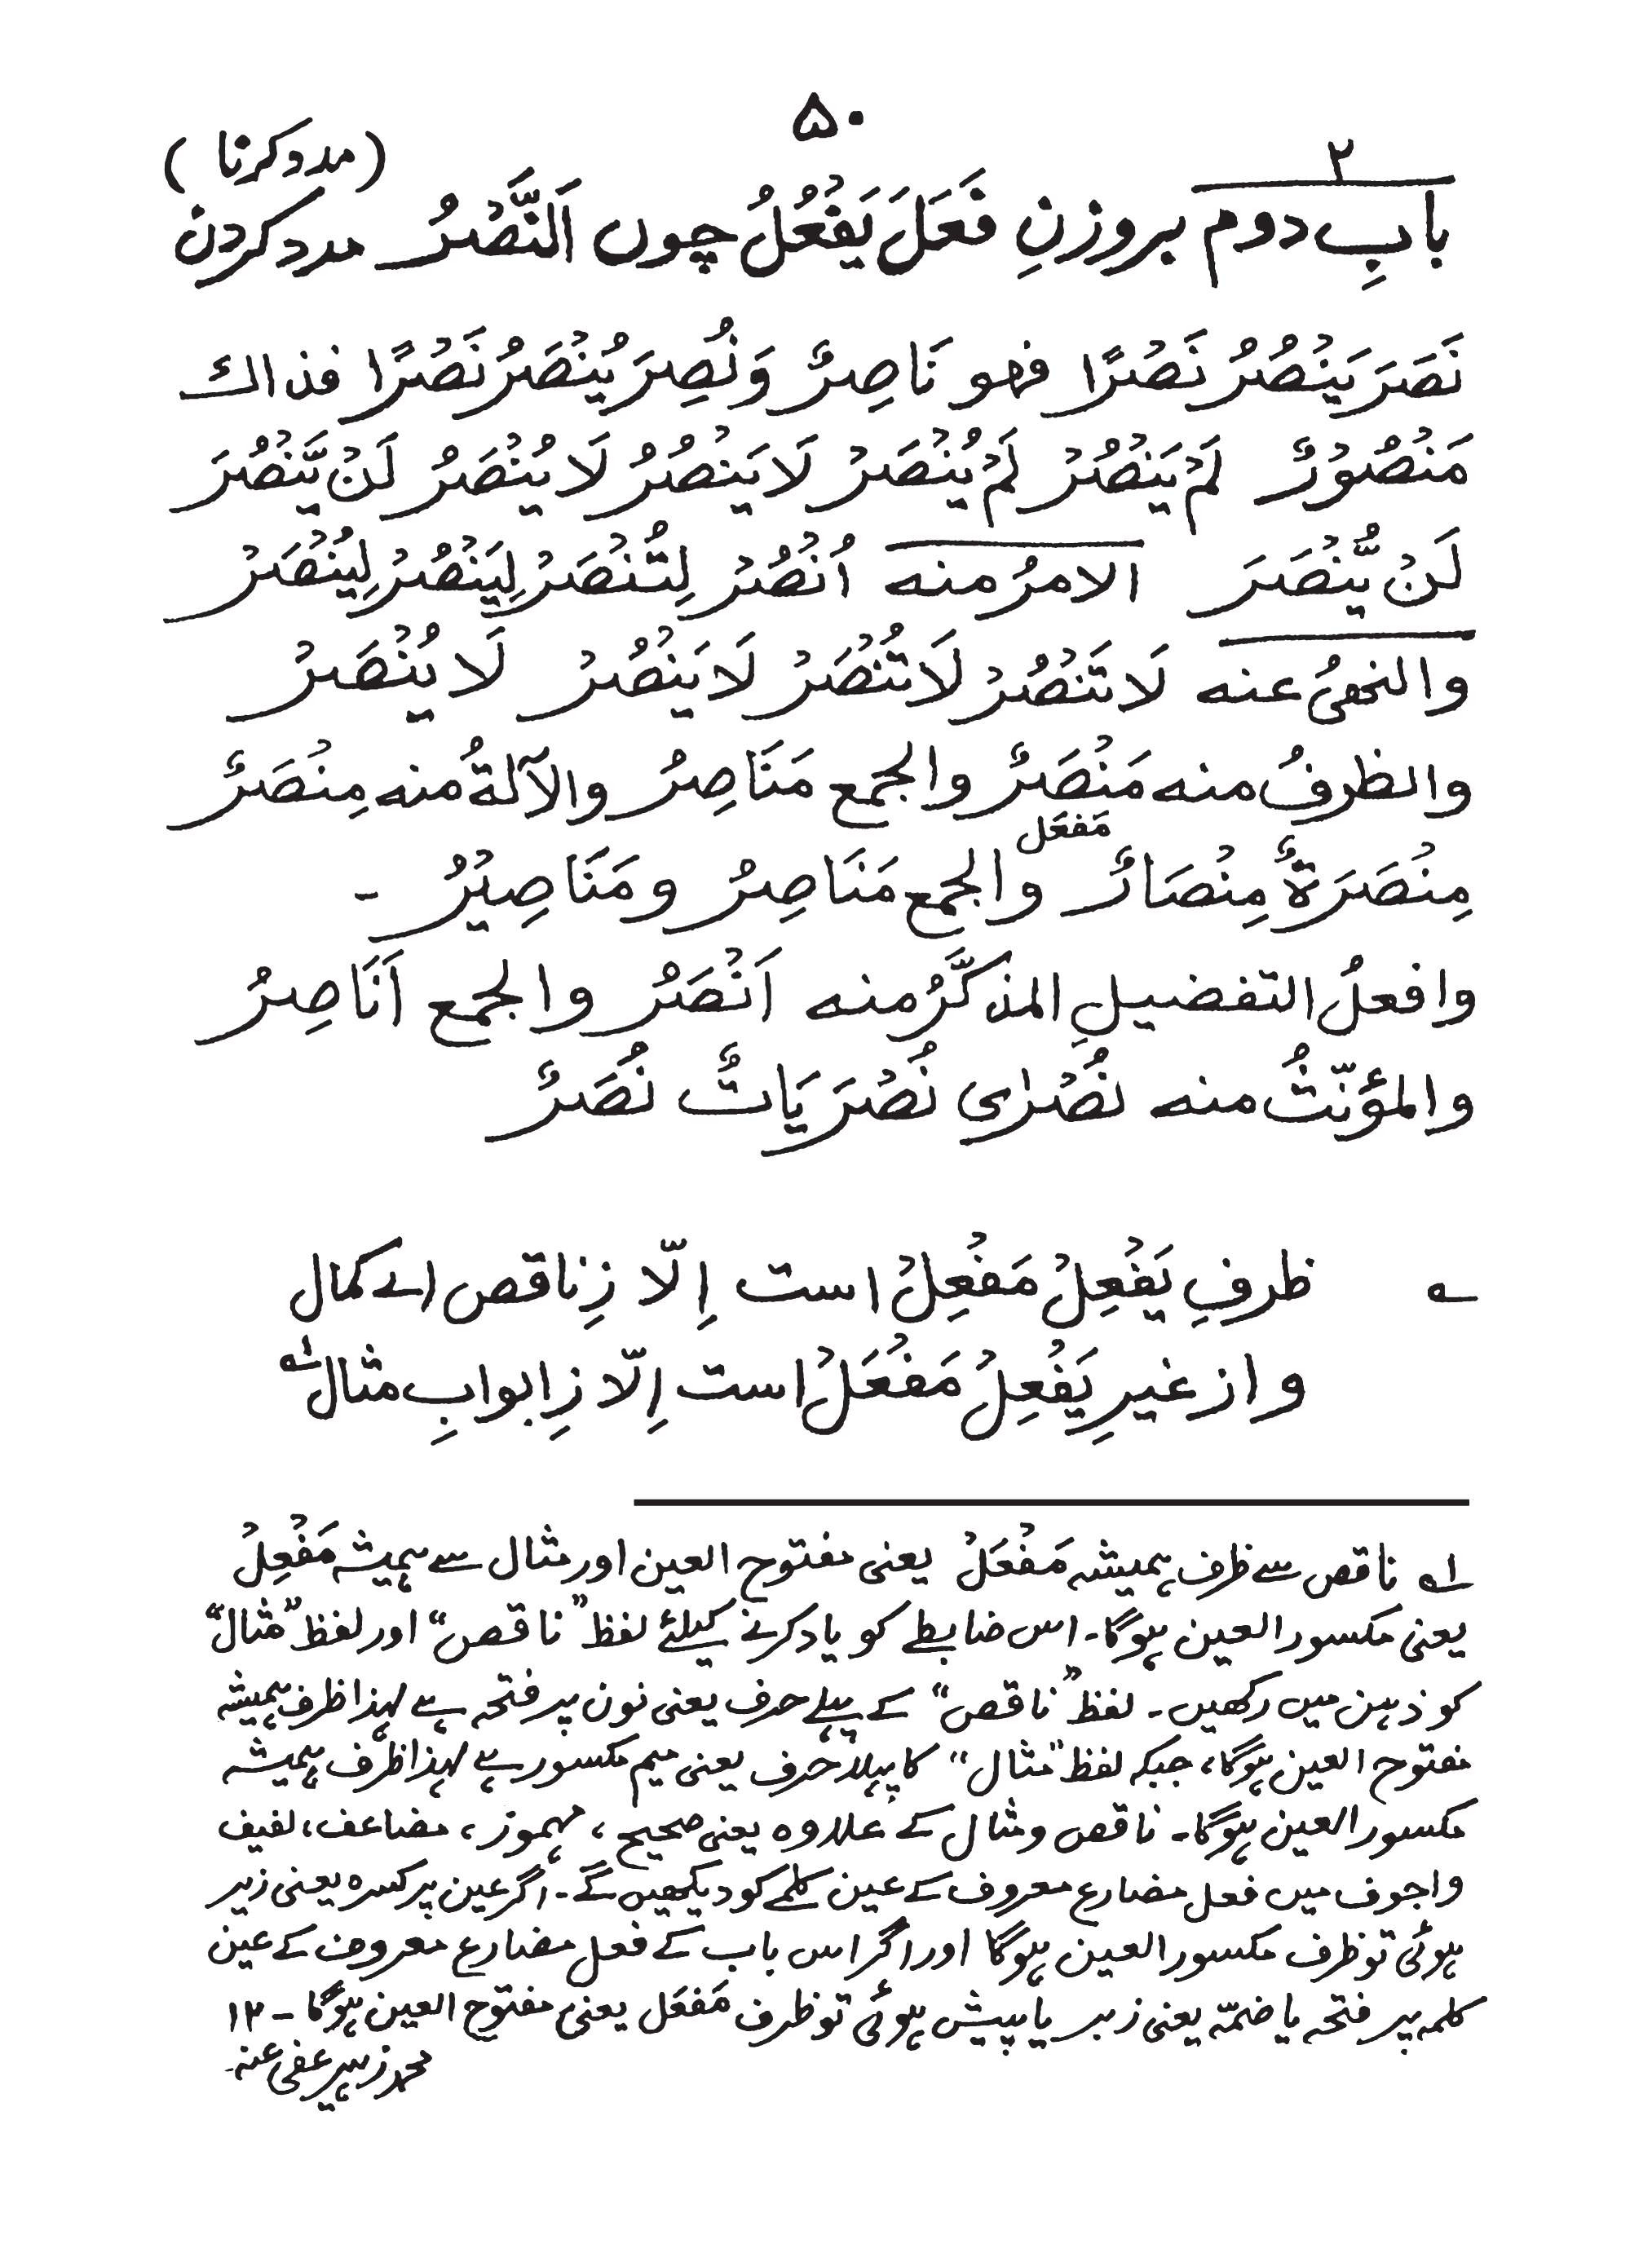 ۵۰
۲
(مدد کرنا)
بابِ دوم بروزنِ فَعَلَ يَفْعُلُ چوں اَلنَّصْرُ مدد کردن
نَصَرَ يَنْصُرُ نَصْرًا فهو نَاصِرٌ وَنُصِرَ يُنْصَرُ نَصْرًا فذاك
مَنْصُوْرٌ لَمْ يَنْصُرْ لَمْ يُنْصَرْ لَا يَنْصُرُ لَا يُنْصَرُ لَنْ يَّنْصُرَ
لَنْ يُّنْصَرَ الامرُ منه اُنْصُرْ لِتُنْصَرْ لِيَنْصُرْ لِيُنْصَرْ
والنهىُ عنه لَا تَنْصُرْ لَا تُنْصَرْ لَا يَنْصُرْ لَا يُنْصَرْ
والظرفُ منه مَنْصَرٌ والجمع مَنَاصِرُ والآلةُ منه مِنْصَرٌ
مَفعَل
مِنْصَرَةٌ مِنْصَارٌ والجمع مَنَاصِرُ و مَنَاصِيْرُ ـ
وافعلُ التفضيلِ المذكَّرُ منه اَنْصَرُ والجمع اَنَاصِرُ
والمؤنّثُ منه نُصْرٰى نُصْرَيَاتٌ نُصَرٌ
ظرفِ يَفْعِلْ مَفْعِلْ است اِلّا زِ ناقص اے کمال
و از غيرِ يَفْعِلْ مَفْعَلْ است اِلّا زِ ابوابِ مثال ؁۱
؁۱ ناقص سے ظرف ہمیشہ مَفْعَلْ یعنی مفتوح العین اور مثال سے ہمیشہ مَفْعِلْ
یعنی مکسور العین ہوگا۔ اس ضابطے کو یاد کرنے کیلئے لفظ ”ناقص“ اور لفظ ”مثال“
کو ذہن میں رکھیں۔ لفظ ”ناقص“ کے پہلے حرف یعنی نون پر فتحہ ہے لہٰذا ظرف ہمیشہ
مفتوح العین ہوگا، جبکہ لفظ ”مثال“ کا پہلا حرف یعنی میم مکسور ہے لہٰذا ظرف ہمیشہ
مکسور العین ہوگا۔ ناقص و مثال کے علاوہ یعنی صحیح، مہموز، مضاعف، لفیف
و اجوف میں فعل مضارع معروف کے عین کلمے کو دیکھیں گے۔ اگر عین پر کسرہ یعنی زیر
ہوئی تو ظرف مکسور العین ہوگا اور اگر اس باب کے فعل مضارع معروف کے عین
کلمہ پر فتحہ یا ضمّہ یعنی زبر یا پیش ہوئی تو ظرف مَفعَل یعنی مفتوح العین ہوگا۔ ۱۲
محمد زہیر عفی عنہ